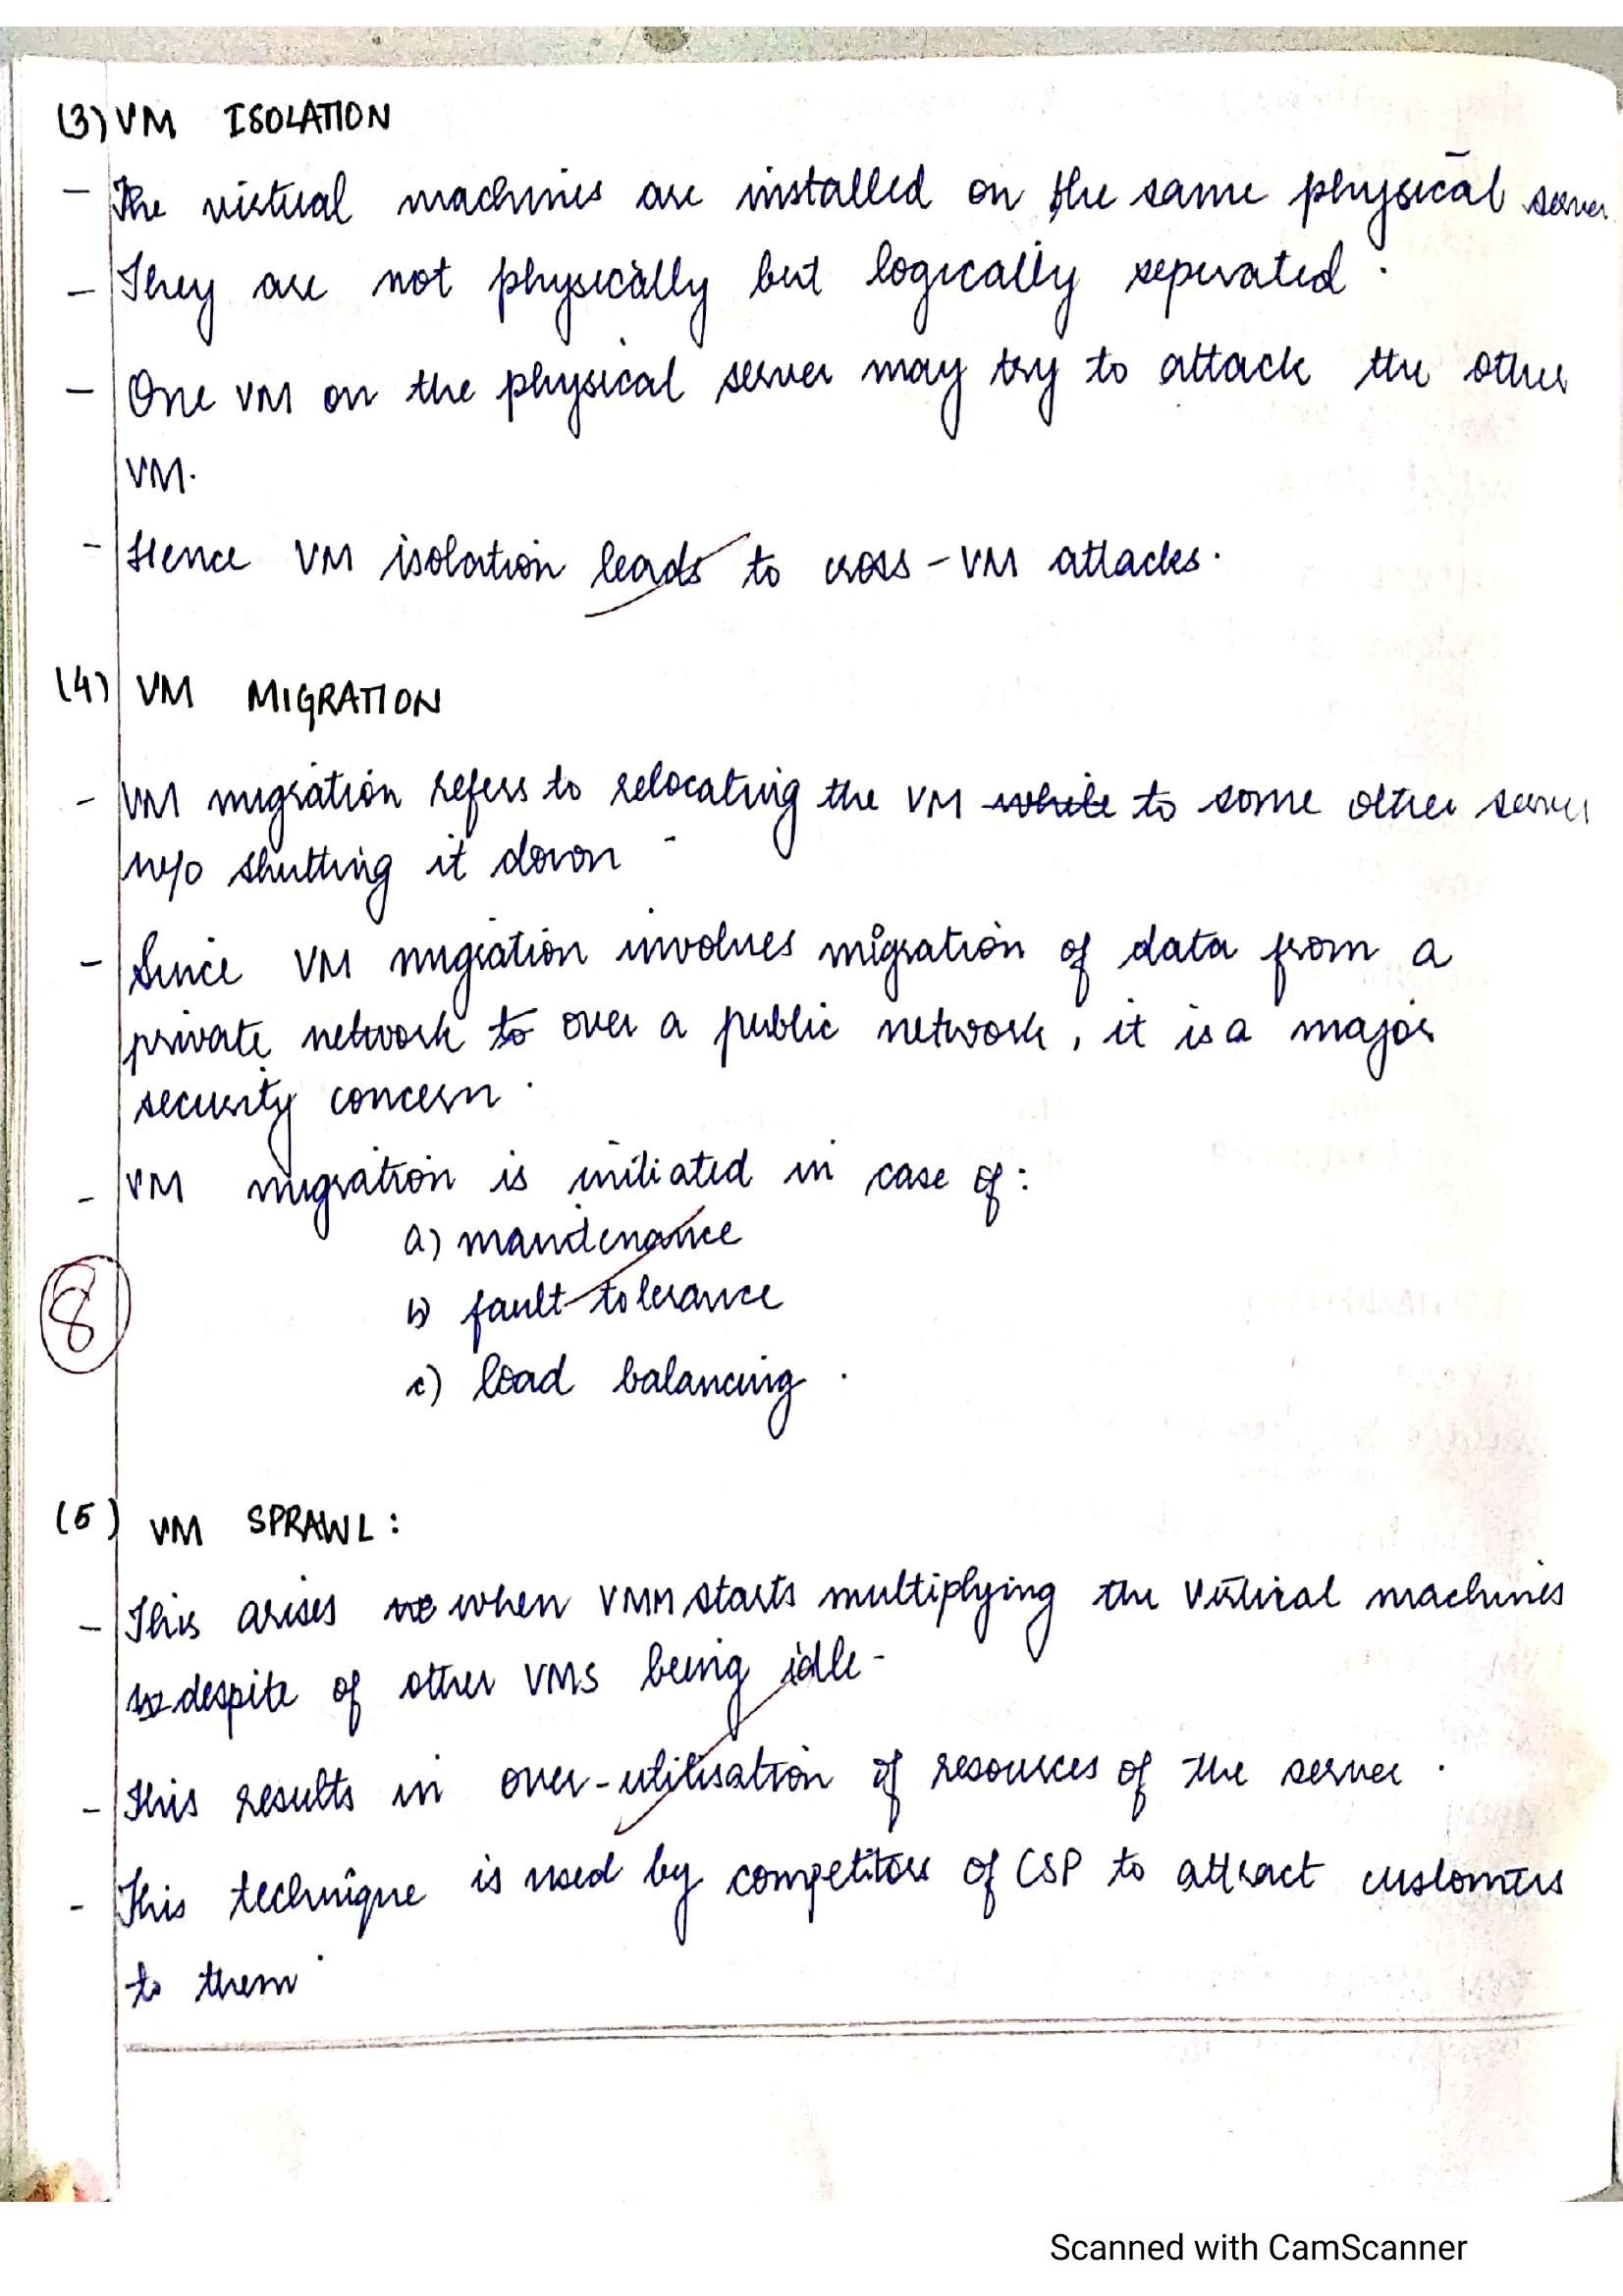 (3) VM ISOLATION
- The virtual machines are installed on the same physical server
- They are not physically but logically seperated.
- One VM on the physical server may try to attack the other
VM.
- Hence VM isolation leads to cross-VM attacks.
(4) VM MIGRATION
- VM migration refers to relocating the VM while to some other server
w/o shutting it down
- Since VM migration involves migration of data from a
private network to over a public network, it is a major
security concern.
- VM migration is initiated in case of:
a) maintenance
b) fault tolerance
8
c) load balancing.
(5) VM SPRAWL:
- This arises when VMM starts multiplying the virtual machines
despite of other VMs being idle.
- This results in over-utilisation of resources of the server.
- This technique is used by competitors of CSP to attract customers
to them
Scanned with CamScanner